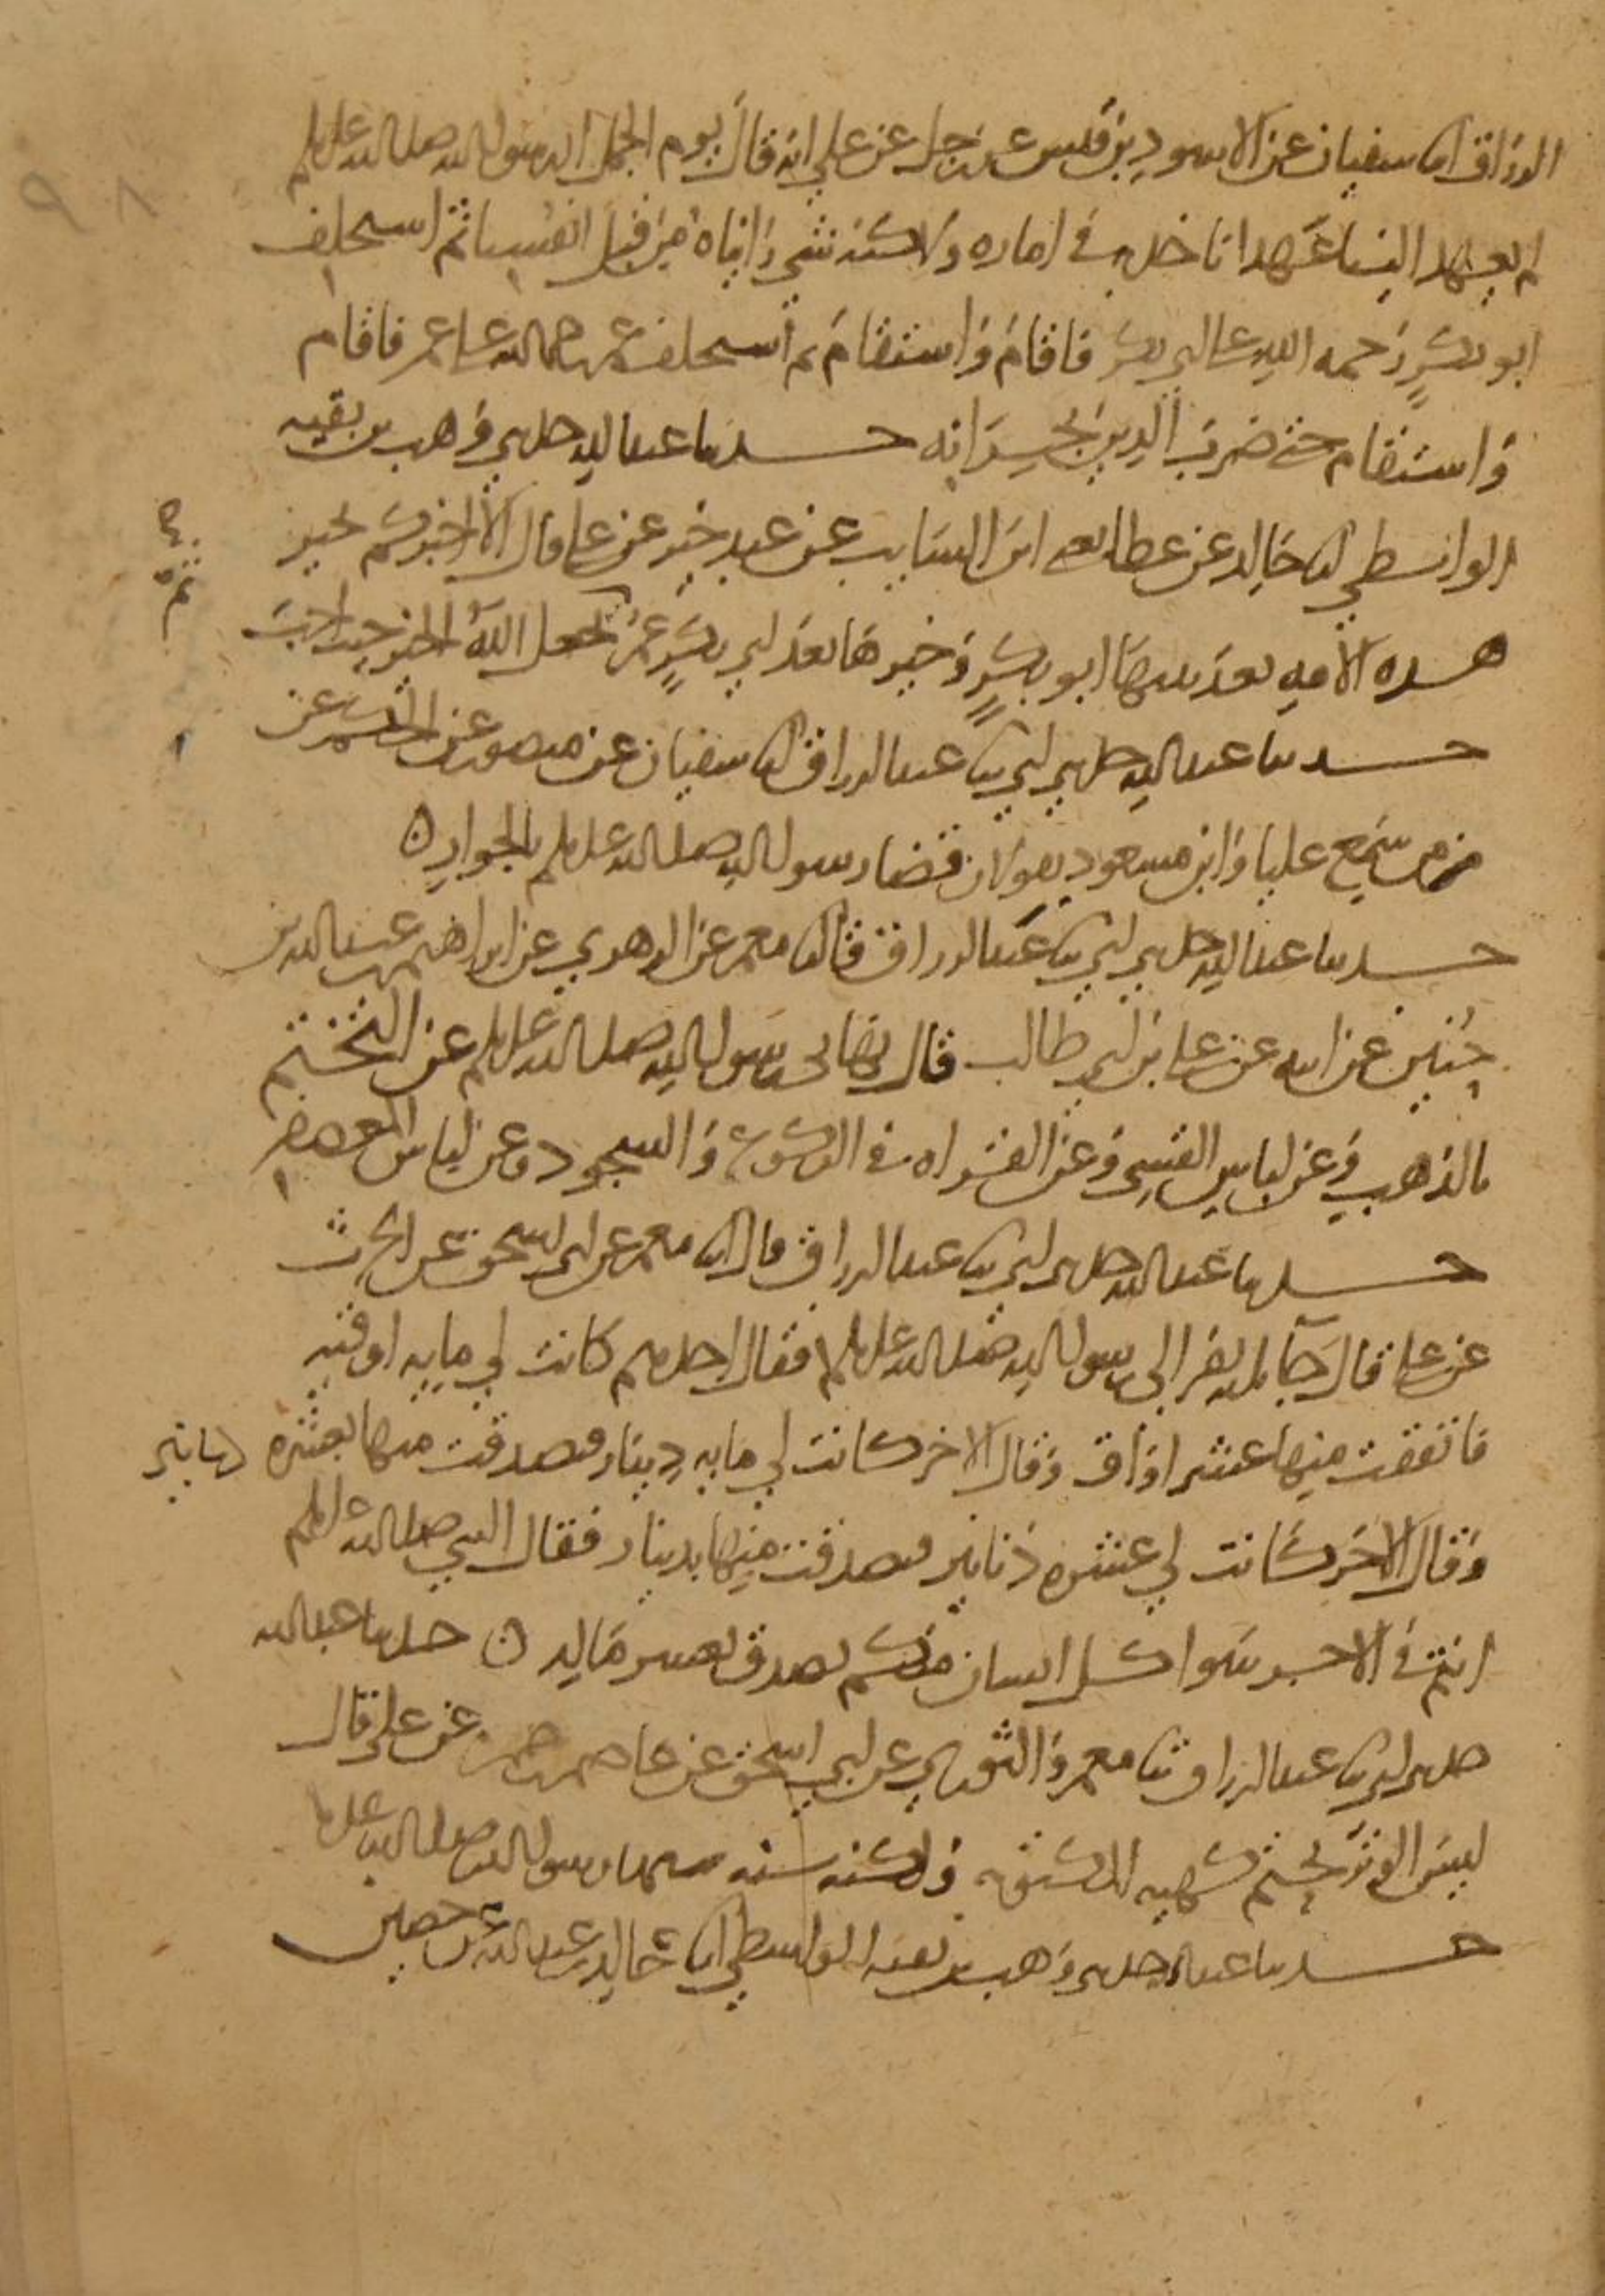 الرزاق انا سفيان عن الاسود بن قيس عن رجل عن علي انه قال يوم الجمل ان رسول الله صلى الله عليه وسلم
لم يعهد الينا عهدا ناخذ به في اماره ولاكنه شي رايناه من قبل انفسنا ثم استخلف
ابو بكر رحمه الله على ابي بكر فاقام واستقام ثم استخلف عمر رحمه الله على عمر فاقام
واستقام حتى ضرب الدين بجرانه حدثنا عبد الله حدثني وهب بن بقيه
الواسطي انا خالد عن عطا يعني ابن السايب عن عبد خير عن علي قال الا اخبركم بخير
هذه الامه بعد نبيها ابو بكر وخيرها بعد ابي بكر عمر ثم يجعل الله الخير حيث احب
حدثنا عبد الله حدثني ابي ثنا عبد الرزاق انا سفيان عن منصور عن الحكم عن
من سمع عليا وابن مسعود يقولان قضا رسول الله صلى الله عليه وسلم بالجوار
حدثنا عبد الله حدثني ابي ثنا عبد الرزاق قال انا معمر عن الزهري عن ابراهيم بن عبد الله بن
حنين عن ابيه عن علي بن ابي طالب قال نهاني رسول الله صلى الله عليه وسلم عن التختم
بالذهب وعن لباس القسي وعن القراه في الركوع والسجود وعن لباس المعصفر
حدثنا عبد الله حدثني ابي ثنا عبد الرزاق قال انا معمر عن ابي اسحق عن الحرث
عن علي قال جا ثلثه نفر الى رسول الله صلى الله عليه وسلم فقال احدهم كانت لي مايه اوقيه
فانفقت منها عشر اواق وقال الاخر كانت لي مايه دينار فتصدقت منها بعشره دنانير
وقال الاخر كانت لي عشره دنانير فتصدقت منها بدينار فقال النبي صلى الله عليه وسلم
انتم في الاجر سوا كل انسان منكم تصدق بعشر ماله حدثنا عبد الله
حدثني ابي ثنا عبد الرزاق ثنا معمر والثوري عن ابي اسحق عن عاصم بن ضمره عن علي قال
ليس الوتر بحتم كهيه المكتوبه ولكنه سنه سنها رسول الله صلى الله عليه
حدثنا عبد الله حدثني وهب بن بقيه الواسطي انا خالد بن عبد الله عن حصين